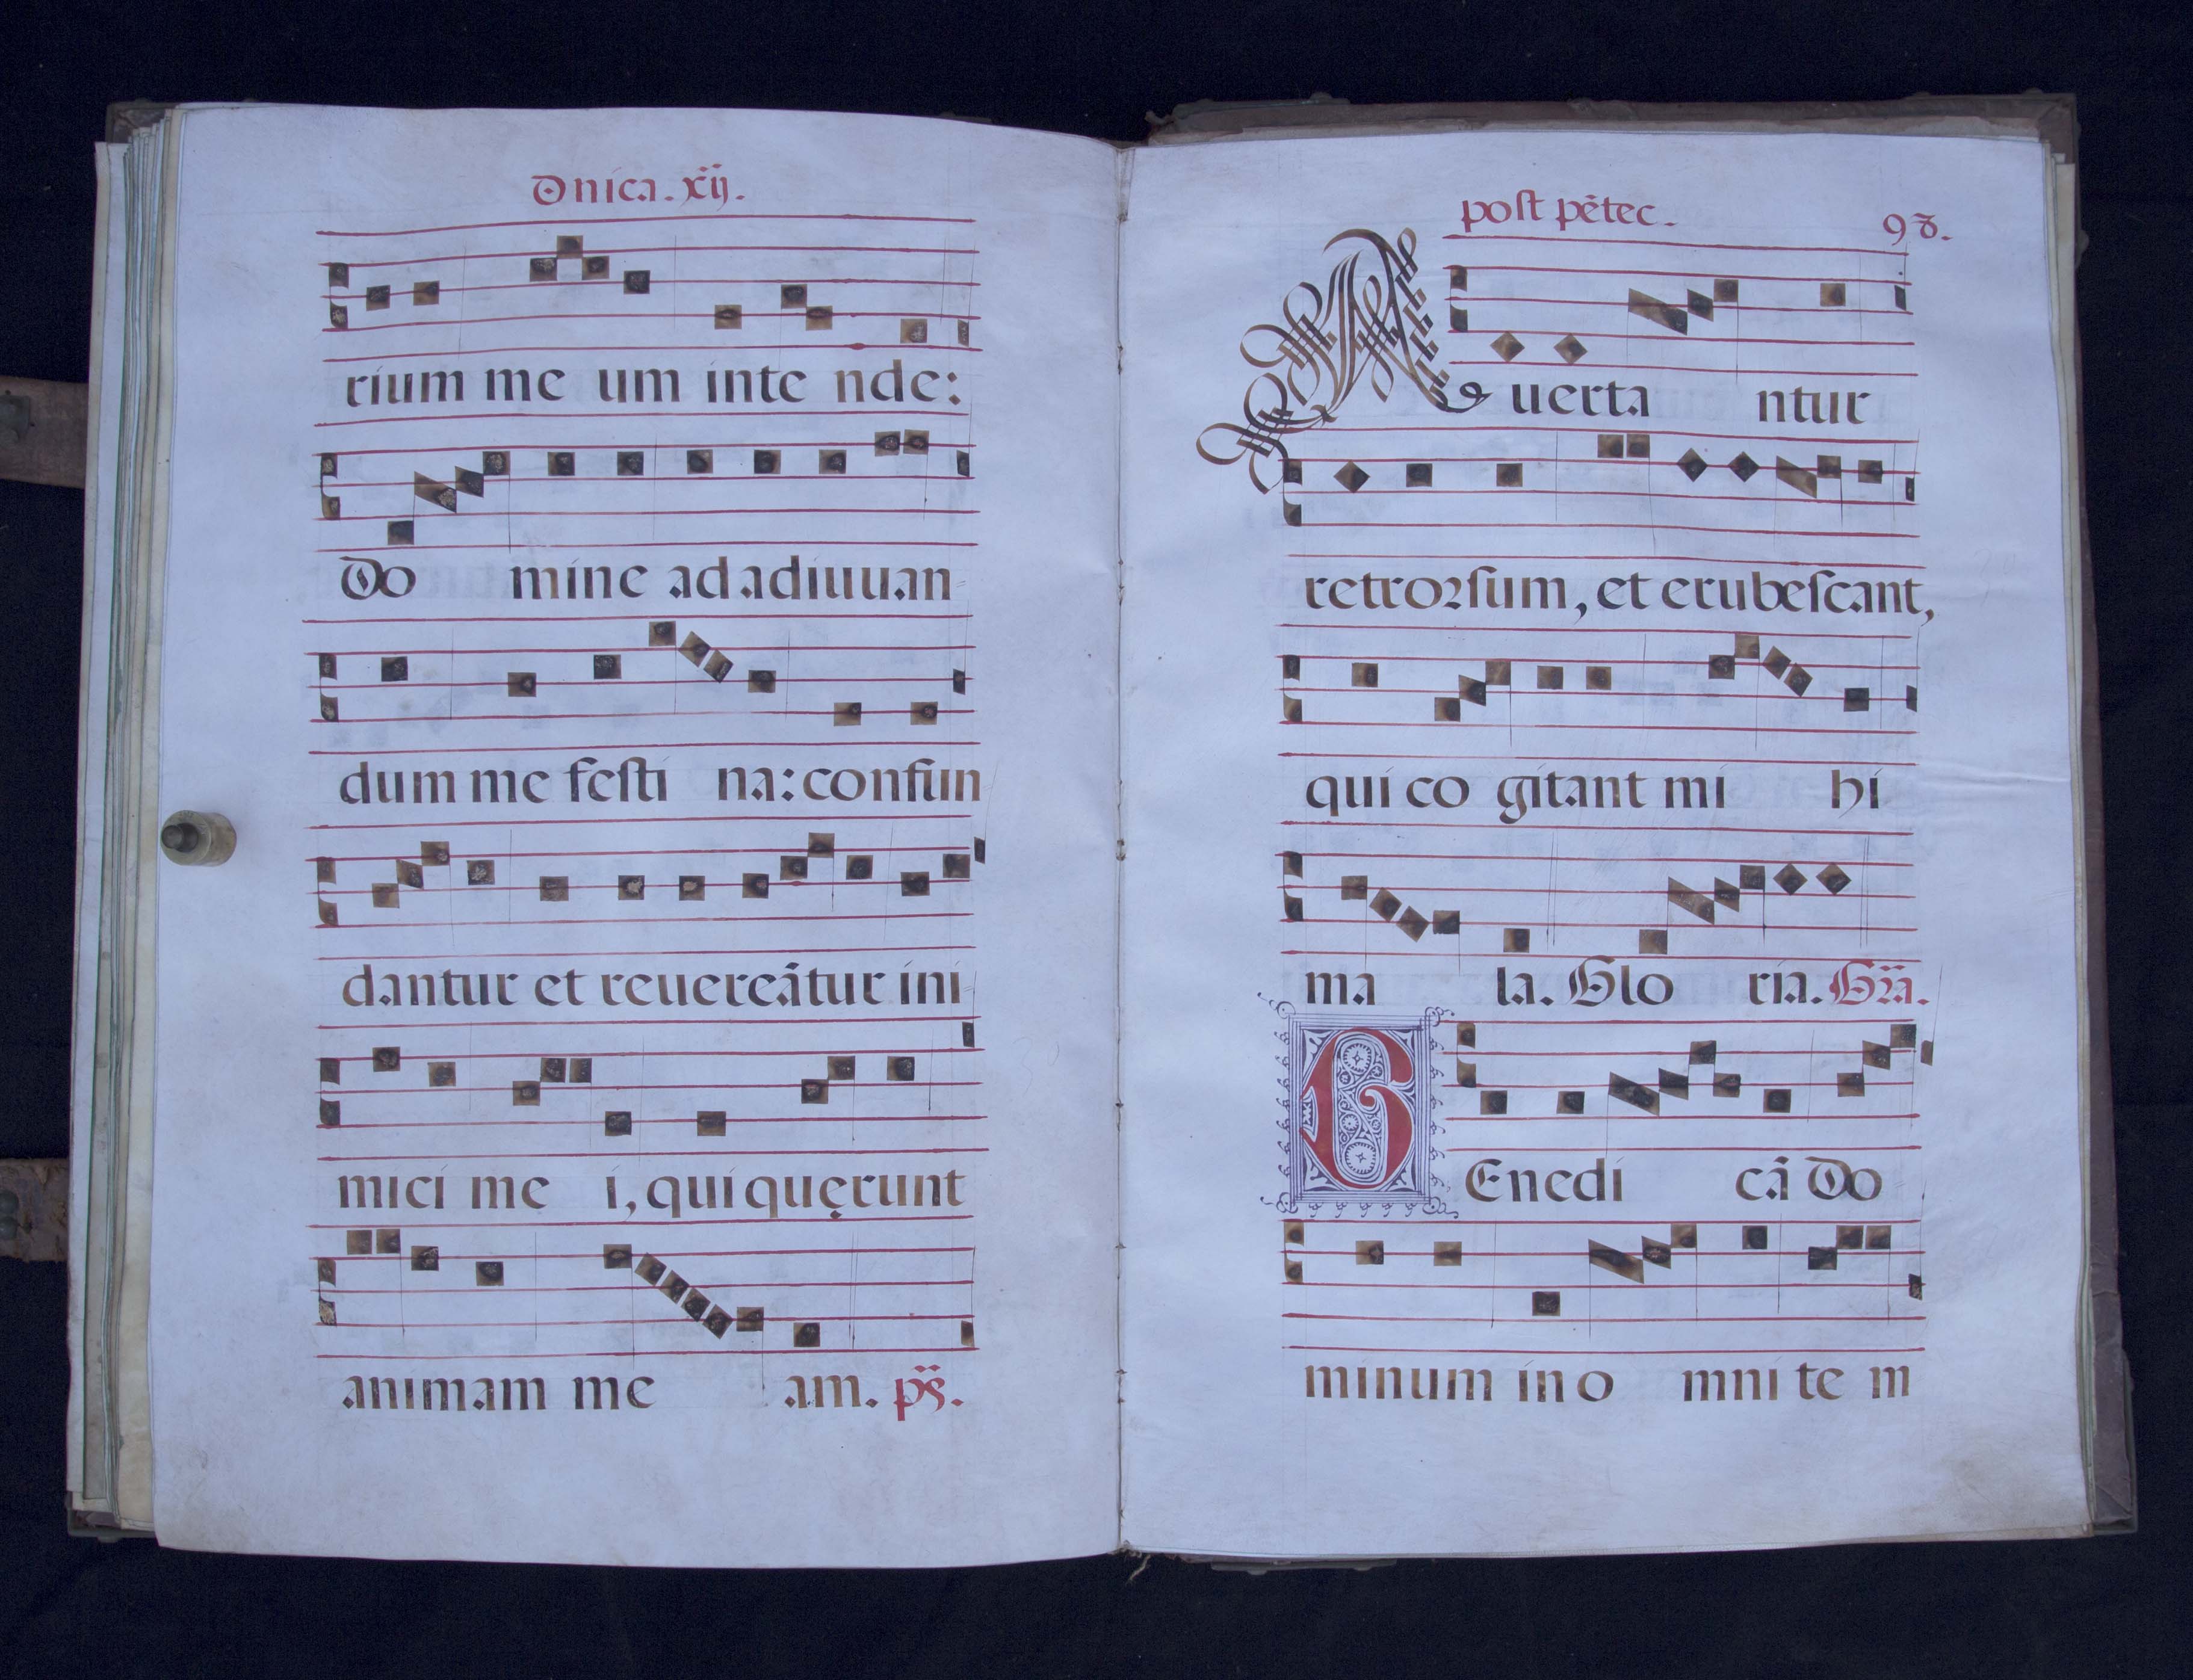 Dnica. xij.
rium me um inte nde:
Do mine ad adiuuan
dum me festi na: confun
dantur et reuereãtur ini
mici me i, qui quęrunt
animam me am. ps.
post pẽtec. 98.
A uerta ntur
retrorsum, et erubescant,
qui co gitant mi hi
ma la. Glo ria. Gra.
BEnedi cã Do
minum in o mni te m